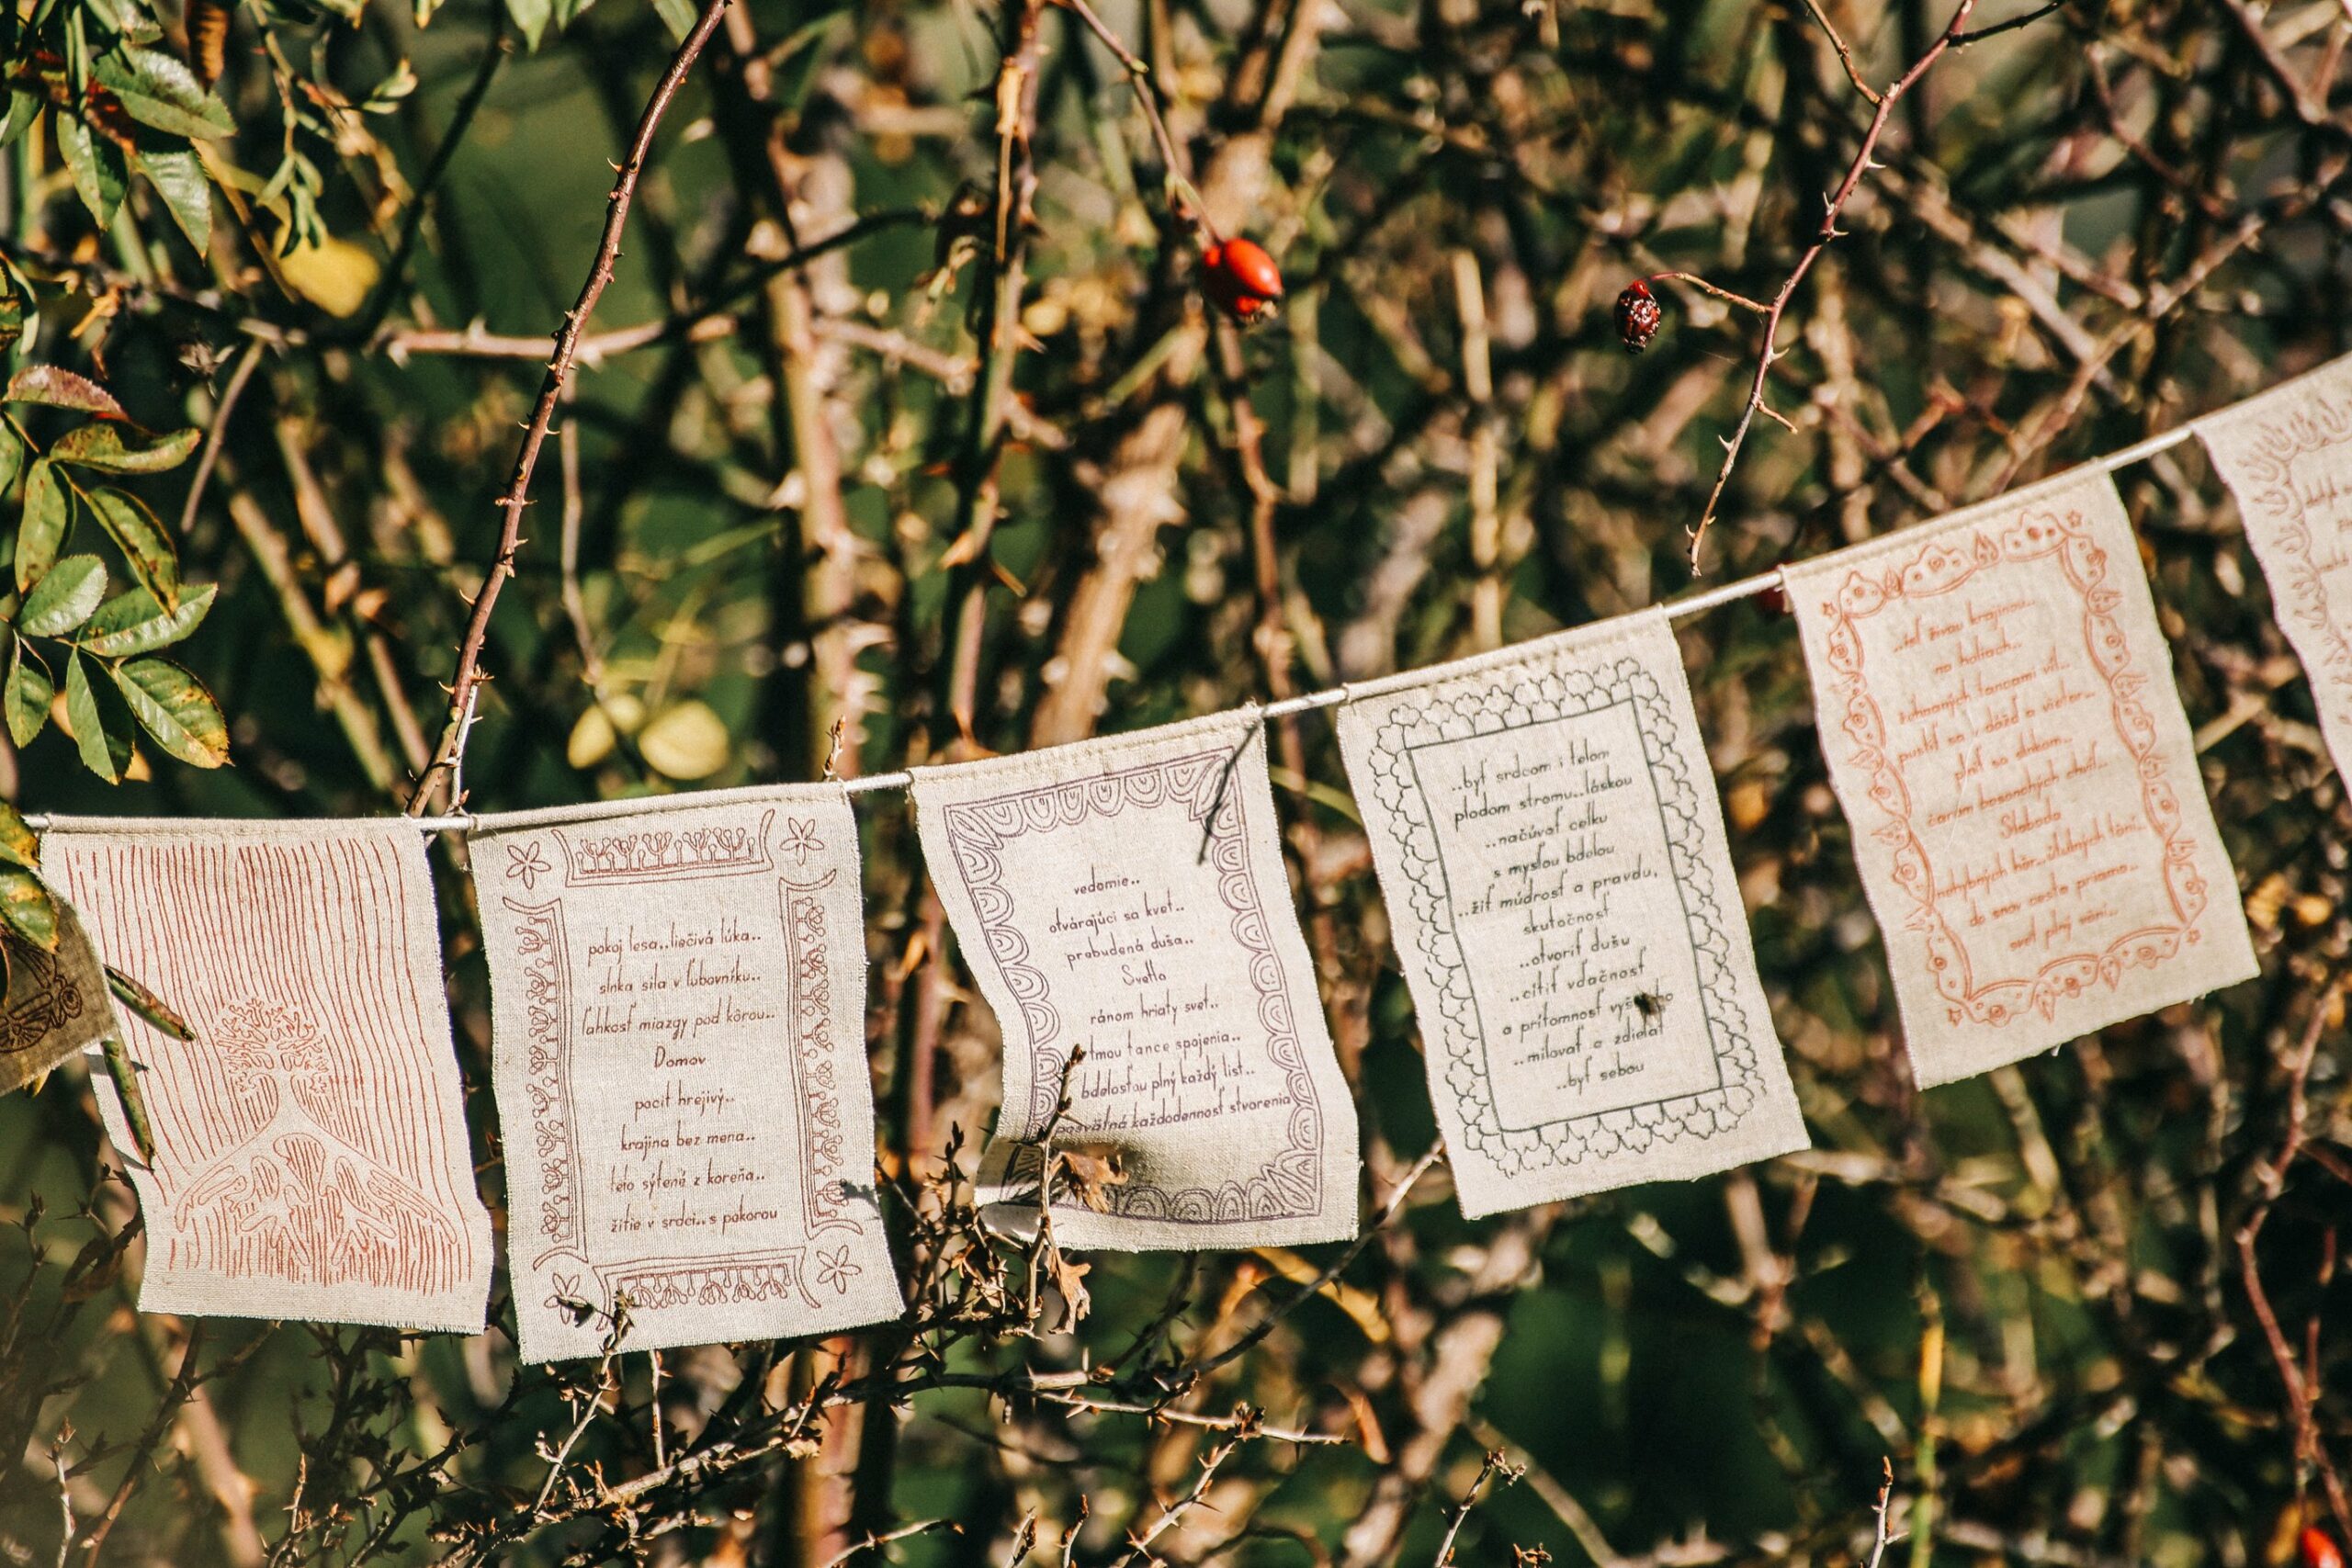 pokoj lesa..liečivá lúka..
slnka sila v ľubovníku..
ľahkosť miazgy pod kôrou..
Domov
pocit hrejivý..
krajina bez mena..
telo sýtené z koreňa..
žitie v srdci..s pokorou
vedomie..
otvárajúci sa kvet..
prebudená duša..
Svetlo
ránom hriaty svet..
tmou tance spojenia..
bdelosťou plný každý list..
posvätná každodennosť stvorenia
..byť srdcom i telom
plodom stromu..láskou
..načúvať celku
s mysľou bdelou
..žiť múdrosť a pravdu,
skutočnosť
..otvoriť dušu
..cítiť vďačnosť
a prítomnosť
..milovať a zdielať
..byť sebou
..isť živou krajinou..
na holiach..
tancami víl..
pustiť sa v dážď a vietor..
plniť sa slnkom..
čarim bosonohých chvíľ..
Sloboda
nehybných hôr..
do snov cesta priama..
svet plný vôní..